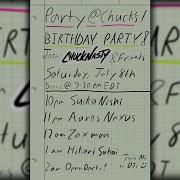 Party @ Chucks!
BIRTHDAY PARTY 8
Join CHUCKNASTY & Friends
Saturday, July 8th
Doors @ 9:30PM EDT
10pm Saiko Nishi
11pm Aaros Nexus
12am Zaxman
1am Hikari Sakai
2am Open Decks!
Join Me
or DJ!